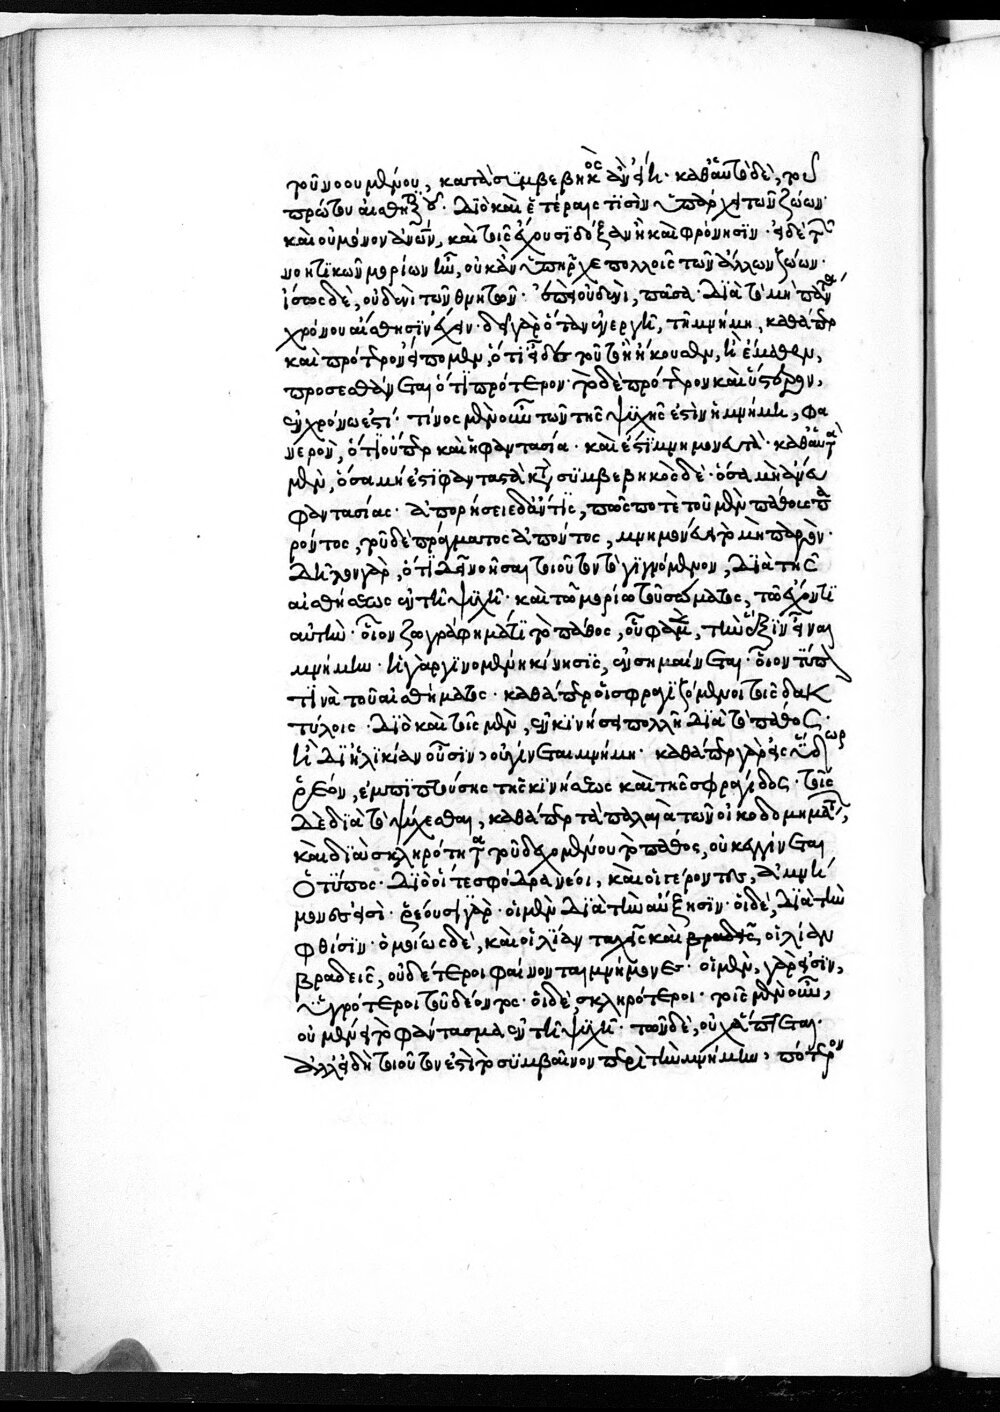 τοῦ νοουμένου, κατὰ συμβεβηκὸς ἂν εἴη· καθ' αὑτὸ δὲ, τοῦ
πρώτου αἰσθητικοῦ. διὸ καὶ ἑτέροις τισὶν ὑπάρχει τῶν ζώων·
καὶ οὐ μόνον ἀνοις, καὶ τοῖς ἔχουσι δόξαν ἢ καὶ φρόνησιν· εἰ δὲ τῶν
νοητικῶν μορίων ἦν, οὐκ ἂν ὑπῆρχε πολλοῖς τῶν ἄλλων ζώων·
ἴσως δὲ, οὐδενὶ τῶν θνητῶν· ἐπεὶ οὐδενὶ, πᾶσα· διὰ τὸ μὴ πάντα
χρόνου αἴσθησιν ἔχειν· ἀεὶ γὰρ ὅταν ἐνεργῇ, τῇ μνήμῃ, καθάπερ
καὶ πρότερον εἴπομεν, ὅτι εἶδε τοῦτο ἢ ἤκουσεν, ἢ ἔμαθεν,
προσαισθάνεται ὅτι πρότερον· τὸ δὲ πρότερον καὶ ὕστερον,
ἐν χρόνω ἐστί· τίνος μὲν οὖν τῶν τῆς ψυχῆς ἐστὶν ἡ μνήμη, φα
νερὸν, ὅτι οὗπερ καὶ ἡ φαντασία· καὶ ἐστὶ μνημονευτὰ καθ' αὑτὰ
μὲν, ὅσα μή ἐστι φανταστὰ κατὰ συμβεβηκὸς δὲ· ὅσα μὴ ἄνευ
φαντασίας· ἀπορήσειε δ' ἄν τις, πῶς ποτε τοῦ μὲν πάθους πα
ρόντος, τοῦ δὲ πράγματος ἀπόντος, μνημονεύει τὸ μὴ παρόν·
δῆλον γὰρ, ὅτι δεῖ νοῆσαι τοιοῦτον τὸ γιγνόμενον, διὰ τῆς
αἰσθήσεως ἐν τῇ ψυχῇ· καὶ τῶ μορίω τοῦ σώματος, τῶ ἔχοντι
αὐτὴν· οἷον ζωγράφημά τι τὸ πάθος, οὗ φαμὲν, τὴν ἕξιν εἶναι
μνήμην· ἡ γὰρ γινομένη κίνησις, ἐνσημαίνεται· οἷον τύπον
τινὰ τοῦ αἰσθήματος· καθάπερ οἱ σφραγιζόμενοι τοῖς δακ
τύλοις· διὸ καὶ τοῖς μὲν, ἐν κινήσει πολλῆ διὰ τὸ πάθος·
ἢ δι' ἡλικίαν οὖσιν, οὐ γίνεται μνήμη· καθάπερ γὰρ εἰς ὕδωρ
ῥέον, ἐμπιπτούσης τῆς κινήσεως καὶ τῆς σφραγίδος· τοῖς
δὲ διὰ τὸ ψύχεσθαι, καθάπερ τὰ παλαιὰ τῶν οἰκοδομημάτων,
καὶ διὰ σκληρότητα τοῦ δεχομένου τὸ πάθος, οὐκ ἐγγίνεται
ὁ τύπος· διὸ οἵ τε σφόδρα νέοι, καὶ οἱ γέροντες, ἀμνή
μονές εἰσι· ῥέουσι γὰρ· οἱ μὲν διὰ τὴν αὔξησιν· οἱ δὲ, διὰ τὴν
φθίσιν· ὁμοίως δὲ, καὶ οἱ λίαν ταχεῖς καὶ βραδεῖς οἱ λίαν
βραδεῖς, οὐδέτεροι φαίνονται μνήμονες· οἱ μὲν, γάρ εἰσιν,
ὑγρότεροι τοῦ δέοντος· οἱ δὲ, σκληρότεροι· τοῖς μὲν οὖν,
οὐ μένει τὸ φάντασμα ἐν τῇ ψυχῇ· τῶν δὲ, οὐχ ἅπτεται·
ἀλλ' εἰ δὴ τοιοῦτον ἐστὶ τὸ συμβαῖνον περὶ τὴν μνήμην, πότερον